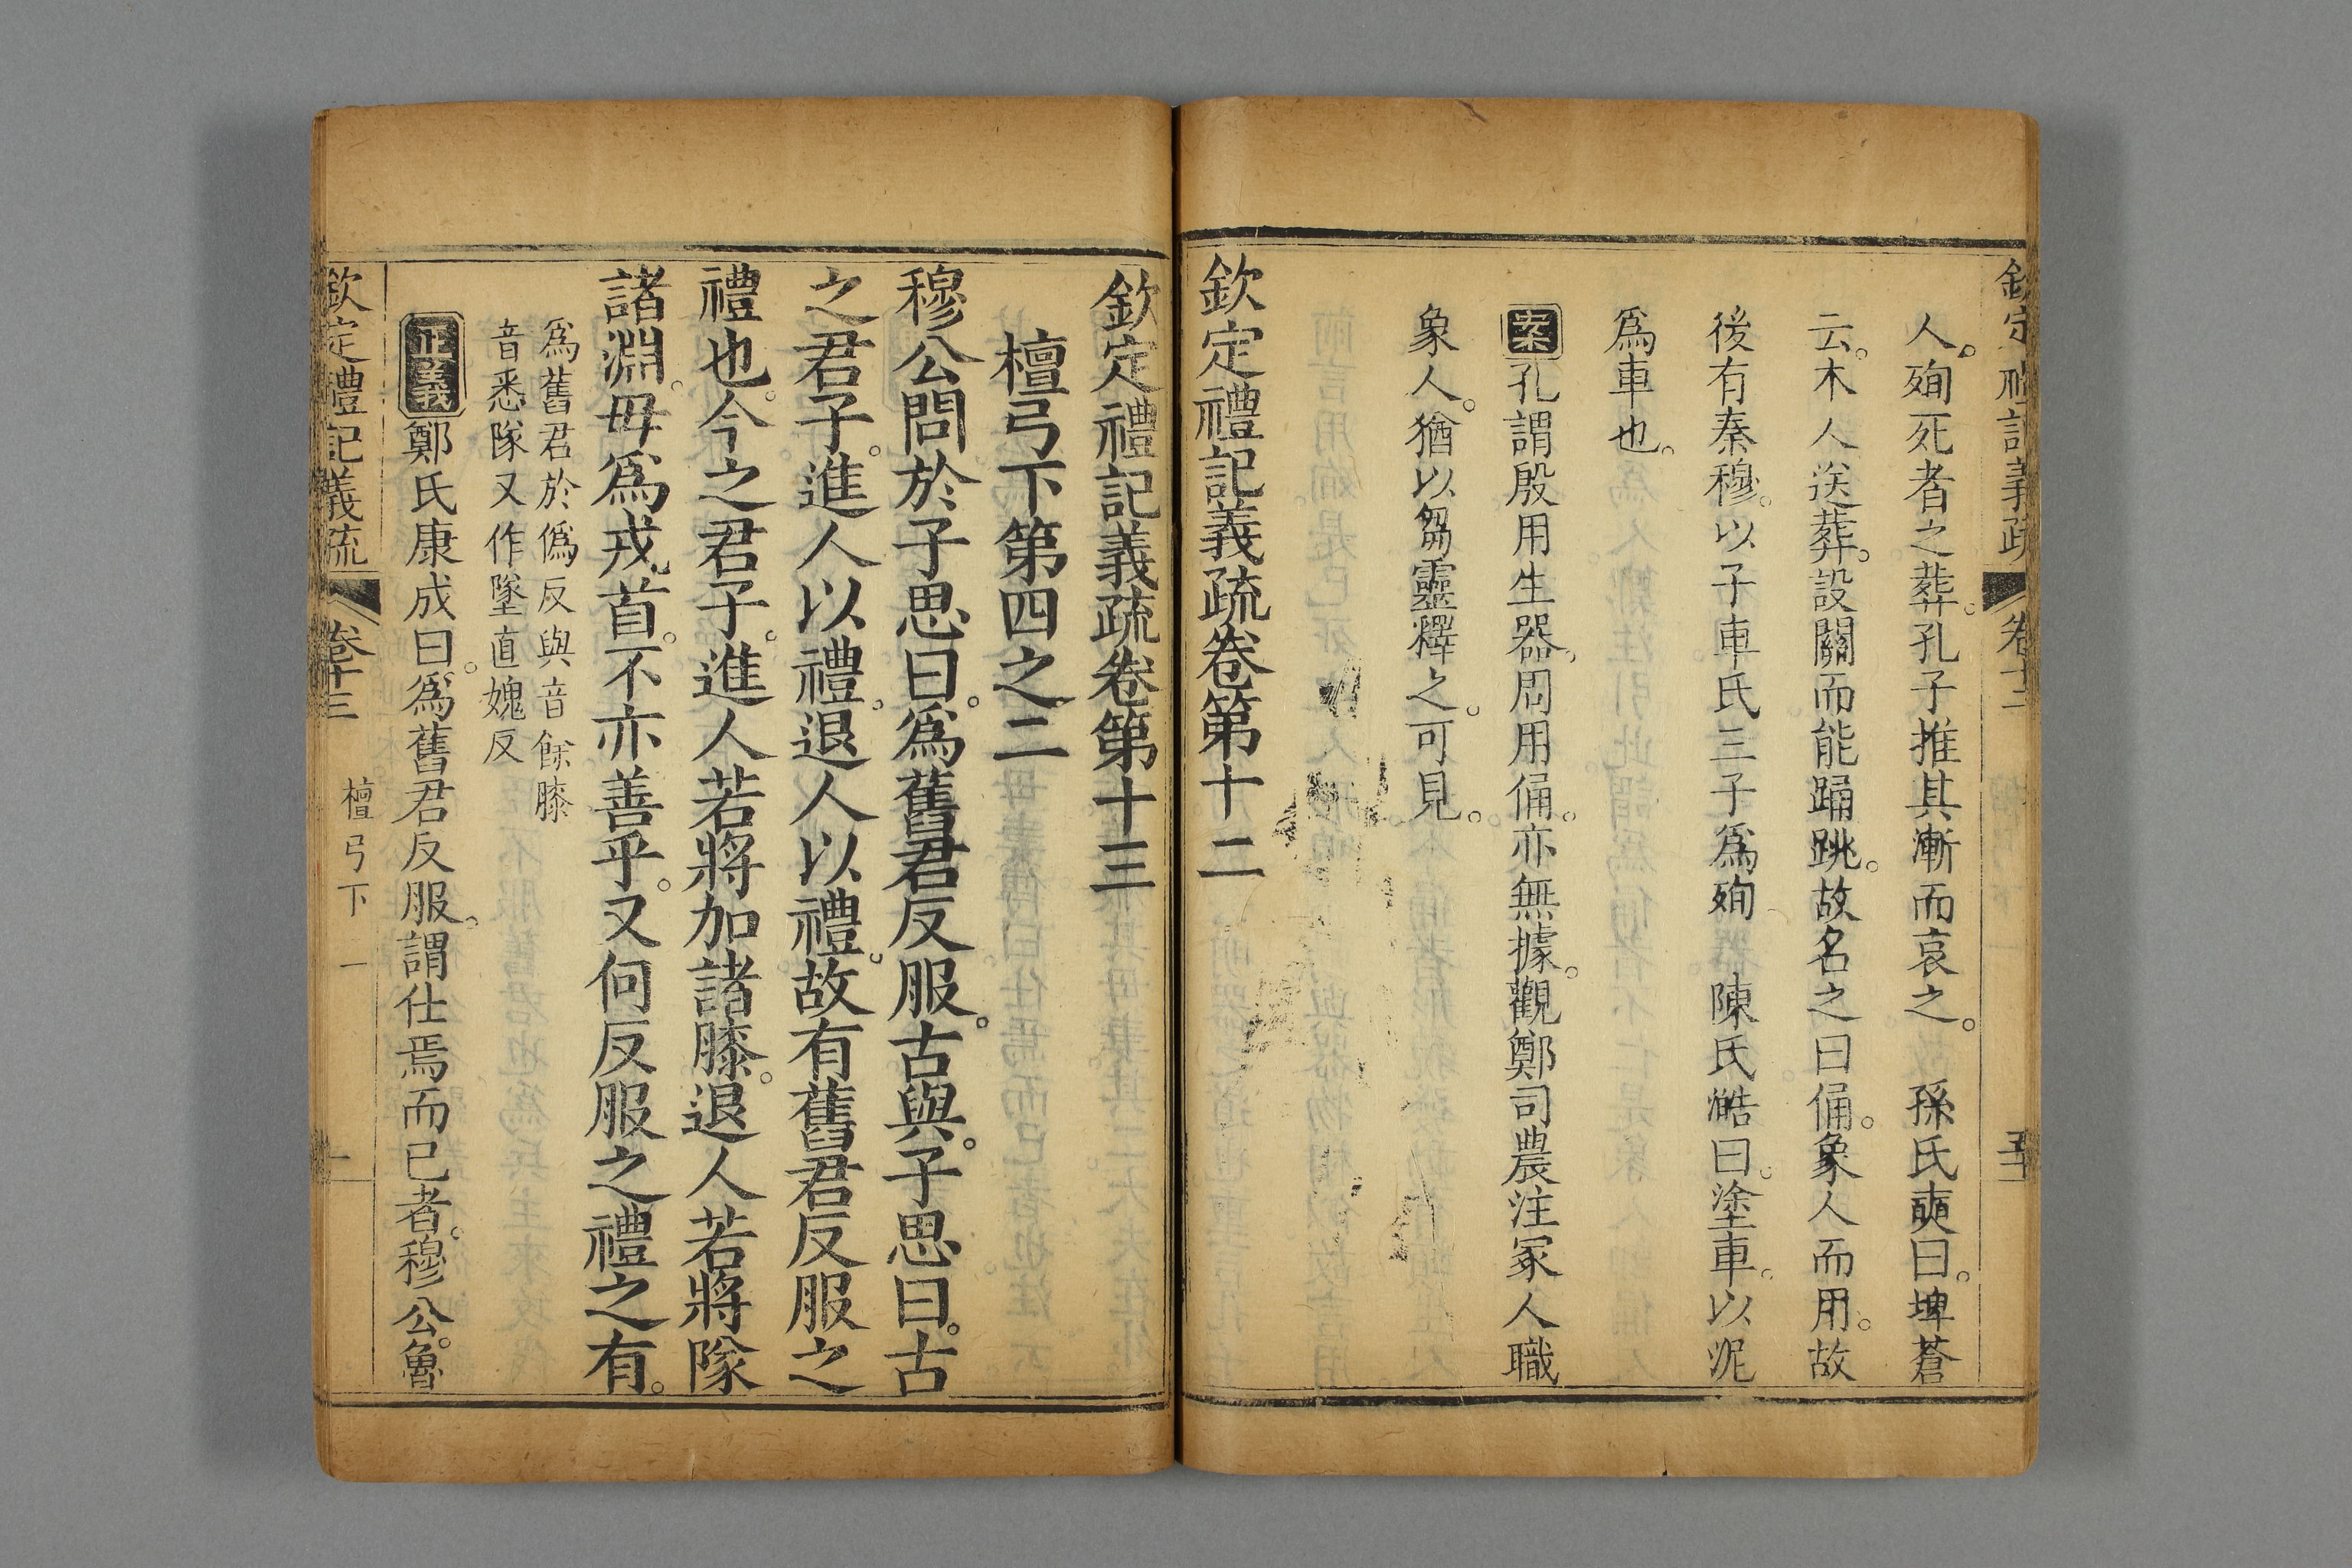 欽定禮記義疏 卷十二
人。殉死者之葬。孔子推其漸而哀之。 孫氏奭曰。埤蒼
云。木人送葬。設關而能踊跳。故名之曰俑。象人而用。故
後有秦穆。以子車氏三子爲殉 陳氏澔曰。塗車。以泥
爲車也。
案孔謂殷用生器。周用俑。亦無據。觀鄭司農注冢人職
象人。猶以芻靈釋之。可見。
欽定禮記義疏卷第十二
欽定禮記義疏卷第十三
檀弓下第四之二
穆公問於子思曰。爲舊君反服。古與。子思曰。古
之君子。進人以禮。退人以禮。故有舊君反服之
禮也。今之君子。進人若將加諸膝。退人若將隊
諸淵。毋爲戎首。不亦善乎。又何反服之禮之有。
爲舊君於僞反與音餘膝
音悉隊又作墜直媿反
正義鄭氏康成曰。爲舊君反服。謂仕焉而已者。穆公。魯
欽定禮記義疏 卷十三 檀弓下 一